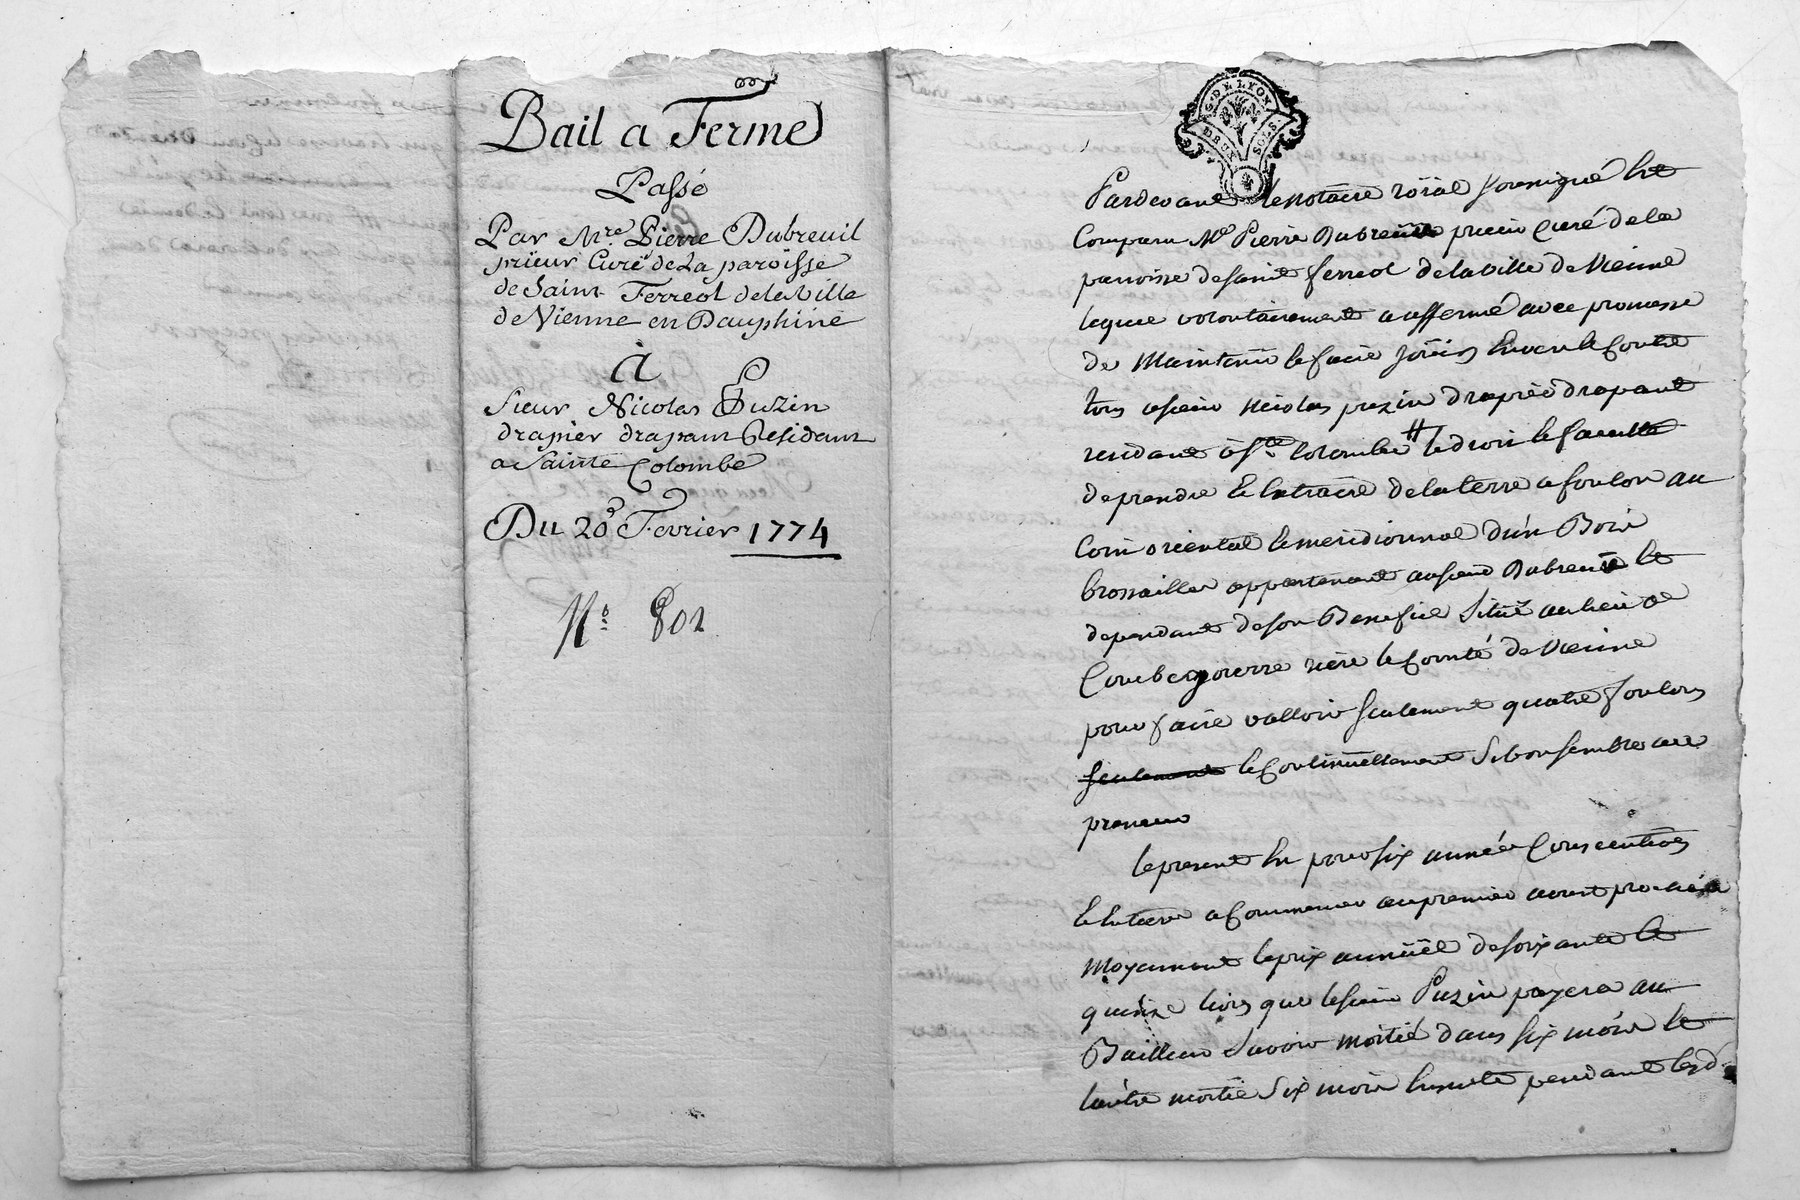 Bail a Ferme
Passé
Par Mre. Pierre Dubreuil
prieur Curé de La paroisse
de Saint Ferreol de la Ville
de Vienne en Dauphiné
à
Sieur Nicolas Puzin
drapier drapant Residant
a Sainte Colombe
Du 20e Fevrier 1774
No. 801
G. DE LYON
DEUX SOLS.
Pardevant le notaire roïal soussigné fut
Comparu Me Pierre Dubreuil prieur Curé de la
parroisse de saint ferreol de la ville de Vienne
lequel volontairement a affermé avec promesse
de Maintenir et faire joüir envers et Contre
tous a sieur nicolas puzin drapier drapant
residant à Ste Colombe # le droit et faculté
de prendre et Extraire de la terre a foulon au
Coin oriental et meridionnal d'un Bois
brossailler appartenant audit sieur Dubreuil et
dependant de son Benefice Situé au lieu de
rière le Comté de Vienne
pour faire valloir seulement quatre foulons
seulement et Continuellement Si bon semble au
preneur
le present fait pour six années Consecutives
et Entieres a Commencer au premier avril prochain
Moyennant le prix annuël de soixante et
quinze livres que le sieur Puzin payera au
Bailleur Savoir moitié dans six mois et
l'autre moitié Six mois Ensuite pendant lesd.